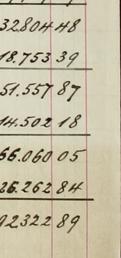 32804 48
18.753 39
51.557 87
14.502 18
66.060 05
26.262 84
92322 89